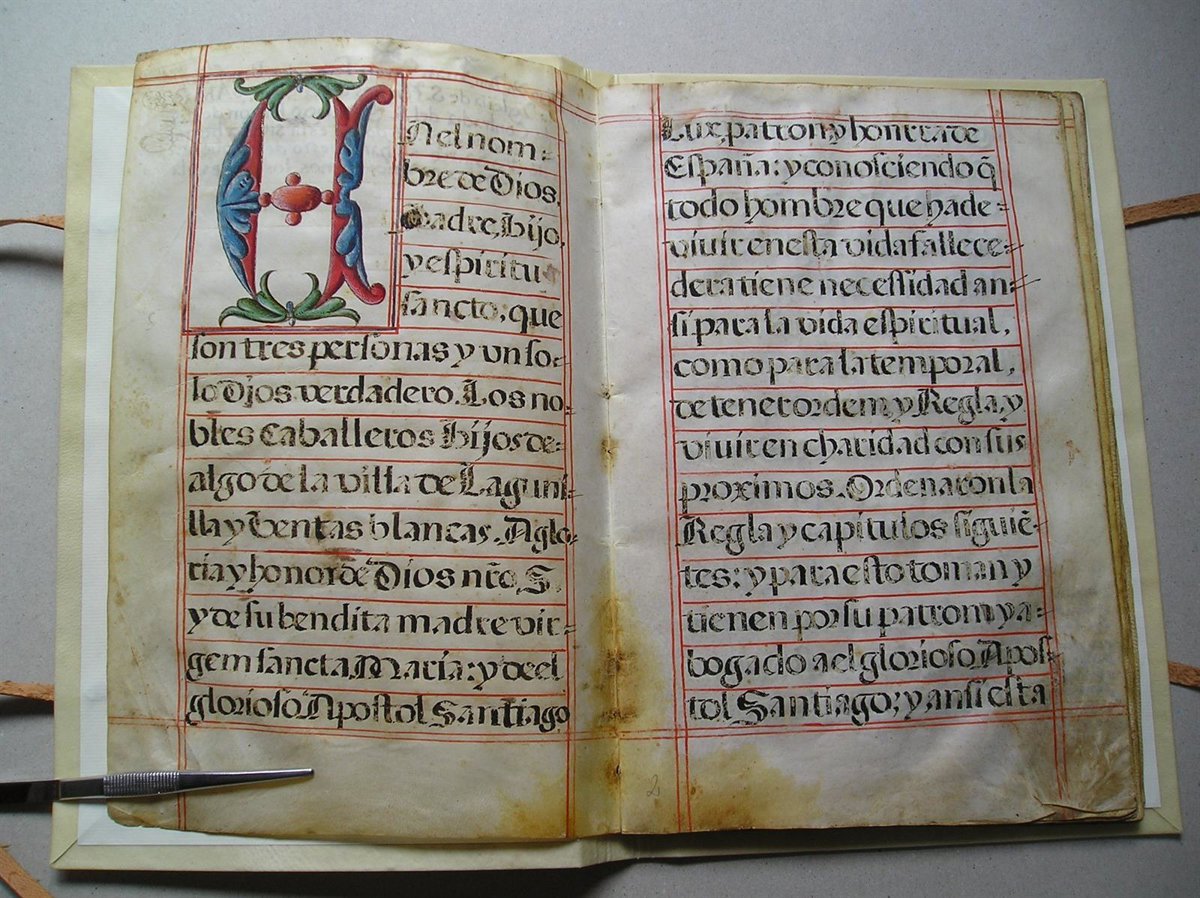 En el nom=
bre de Dios,
Padre, hijo,
y espiritu
sancto; que
son tres personas y un so=
lo Dios verdadero. Los no=
bles caballeros hijosde=
algo de la villa de Laguni=
lla y Ventas blancas. A glo=
ria y honor de Dios nr̃o S.
y de su bendita madre vir=
gem sancta Maria: y de el
glorioso Apostol Santiago
Luz, patron y honrra de
España: y conosciendo q̃
todo hombre que ha de=
vivir en esta vida fallece=
dera tiene necessidad an=
si para la vida espiritual,
como para la temporal,
de tener ordem y Regla, y
vivir en charidad con sus
proximos. Ordenaron la
Regla y capitulos siguiẽ=
tes: y para esto toman y
tienen por su patrom y a=
bogado a el glorioso Apos=
tol Santiago; y ansi esta
2